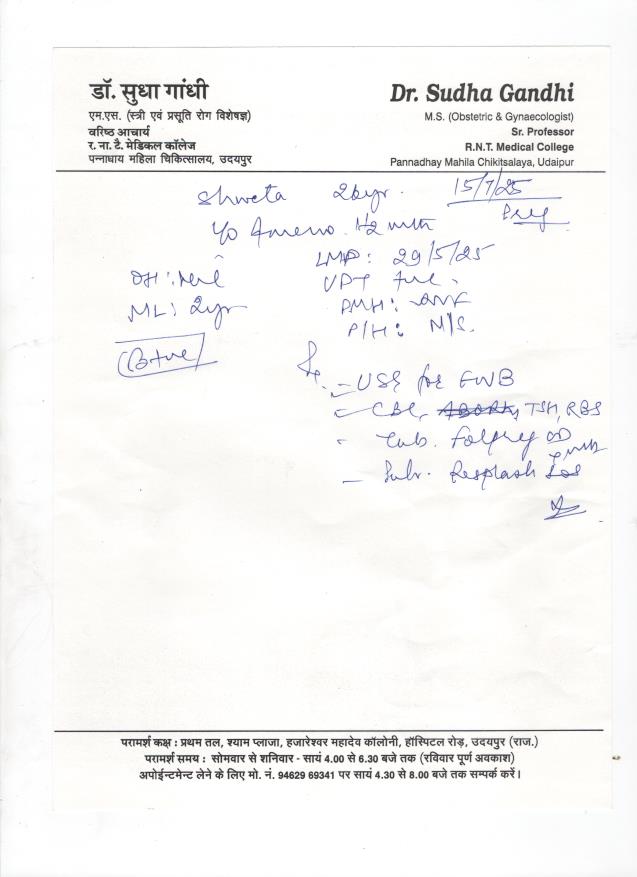 डॉ. सुधा गांधी
एम.एस. (स्त्री एवं प्रसूति रोग विशेषज्ञ)
वरिष्ठ आचार्य
र. ना. टै. मेडिकल कॉलेज
पन्नाधाय महिला चिकित्सालय, उदयपुर
Dr. Sudha Gandhi
M.S. (Obstetric & Gynaecologist)
Sr. Professor
R.N.T. Medical College
Pannadhay Mahila Chikitsalaya, Udaipur
Shweta 26yr. 15/7/25
Y/o Ameno. 1½ mth
LMP: 29/5/25
OH: Nil UPT +ve.
ML: 2yr PMH:
P/H: N/S.
(B+ve)
USG for FWB
CBC, TSH, RBS
Tab. Folpreg OD
Resplash
परामर्श कक्ष : प्रथम तल, श्याम प्लाजा, हजारेश्वर महादेव कॉलोनी, हॉस्पिटल रोड़, उदयपुर (राज.)
परामर्श समय : सोमवार से शनिवार - सायं 4.00 से 6.30 बजे तक (रविवार पूर्ण अवकाश)
अपोईन्टमेन्ट लेने के लिए मो. नं. 94629 69341 पर सायं 4.30 से 8.00 बजे तक सम्पर्क करें।